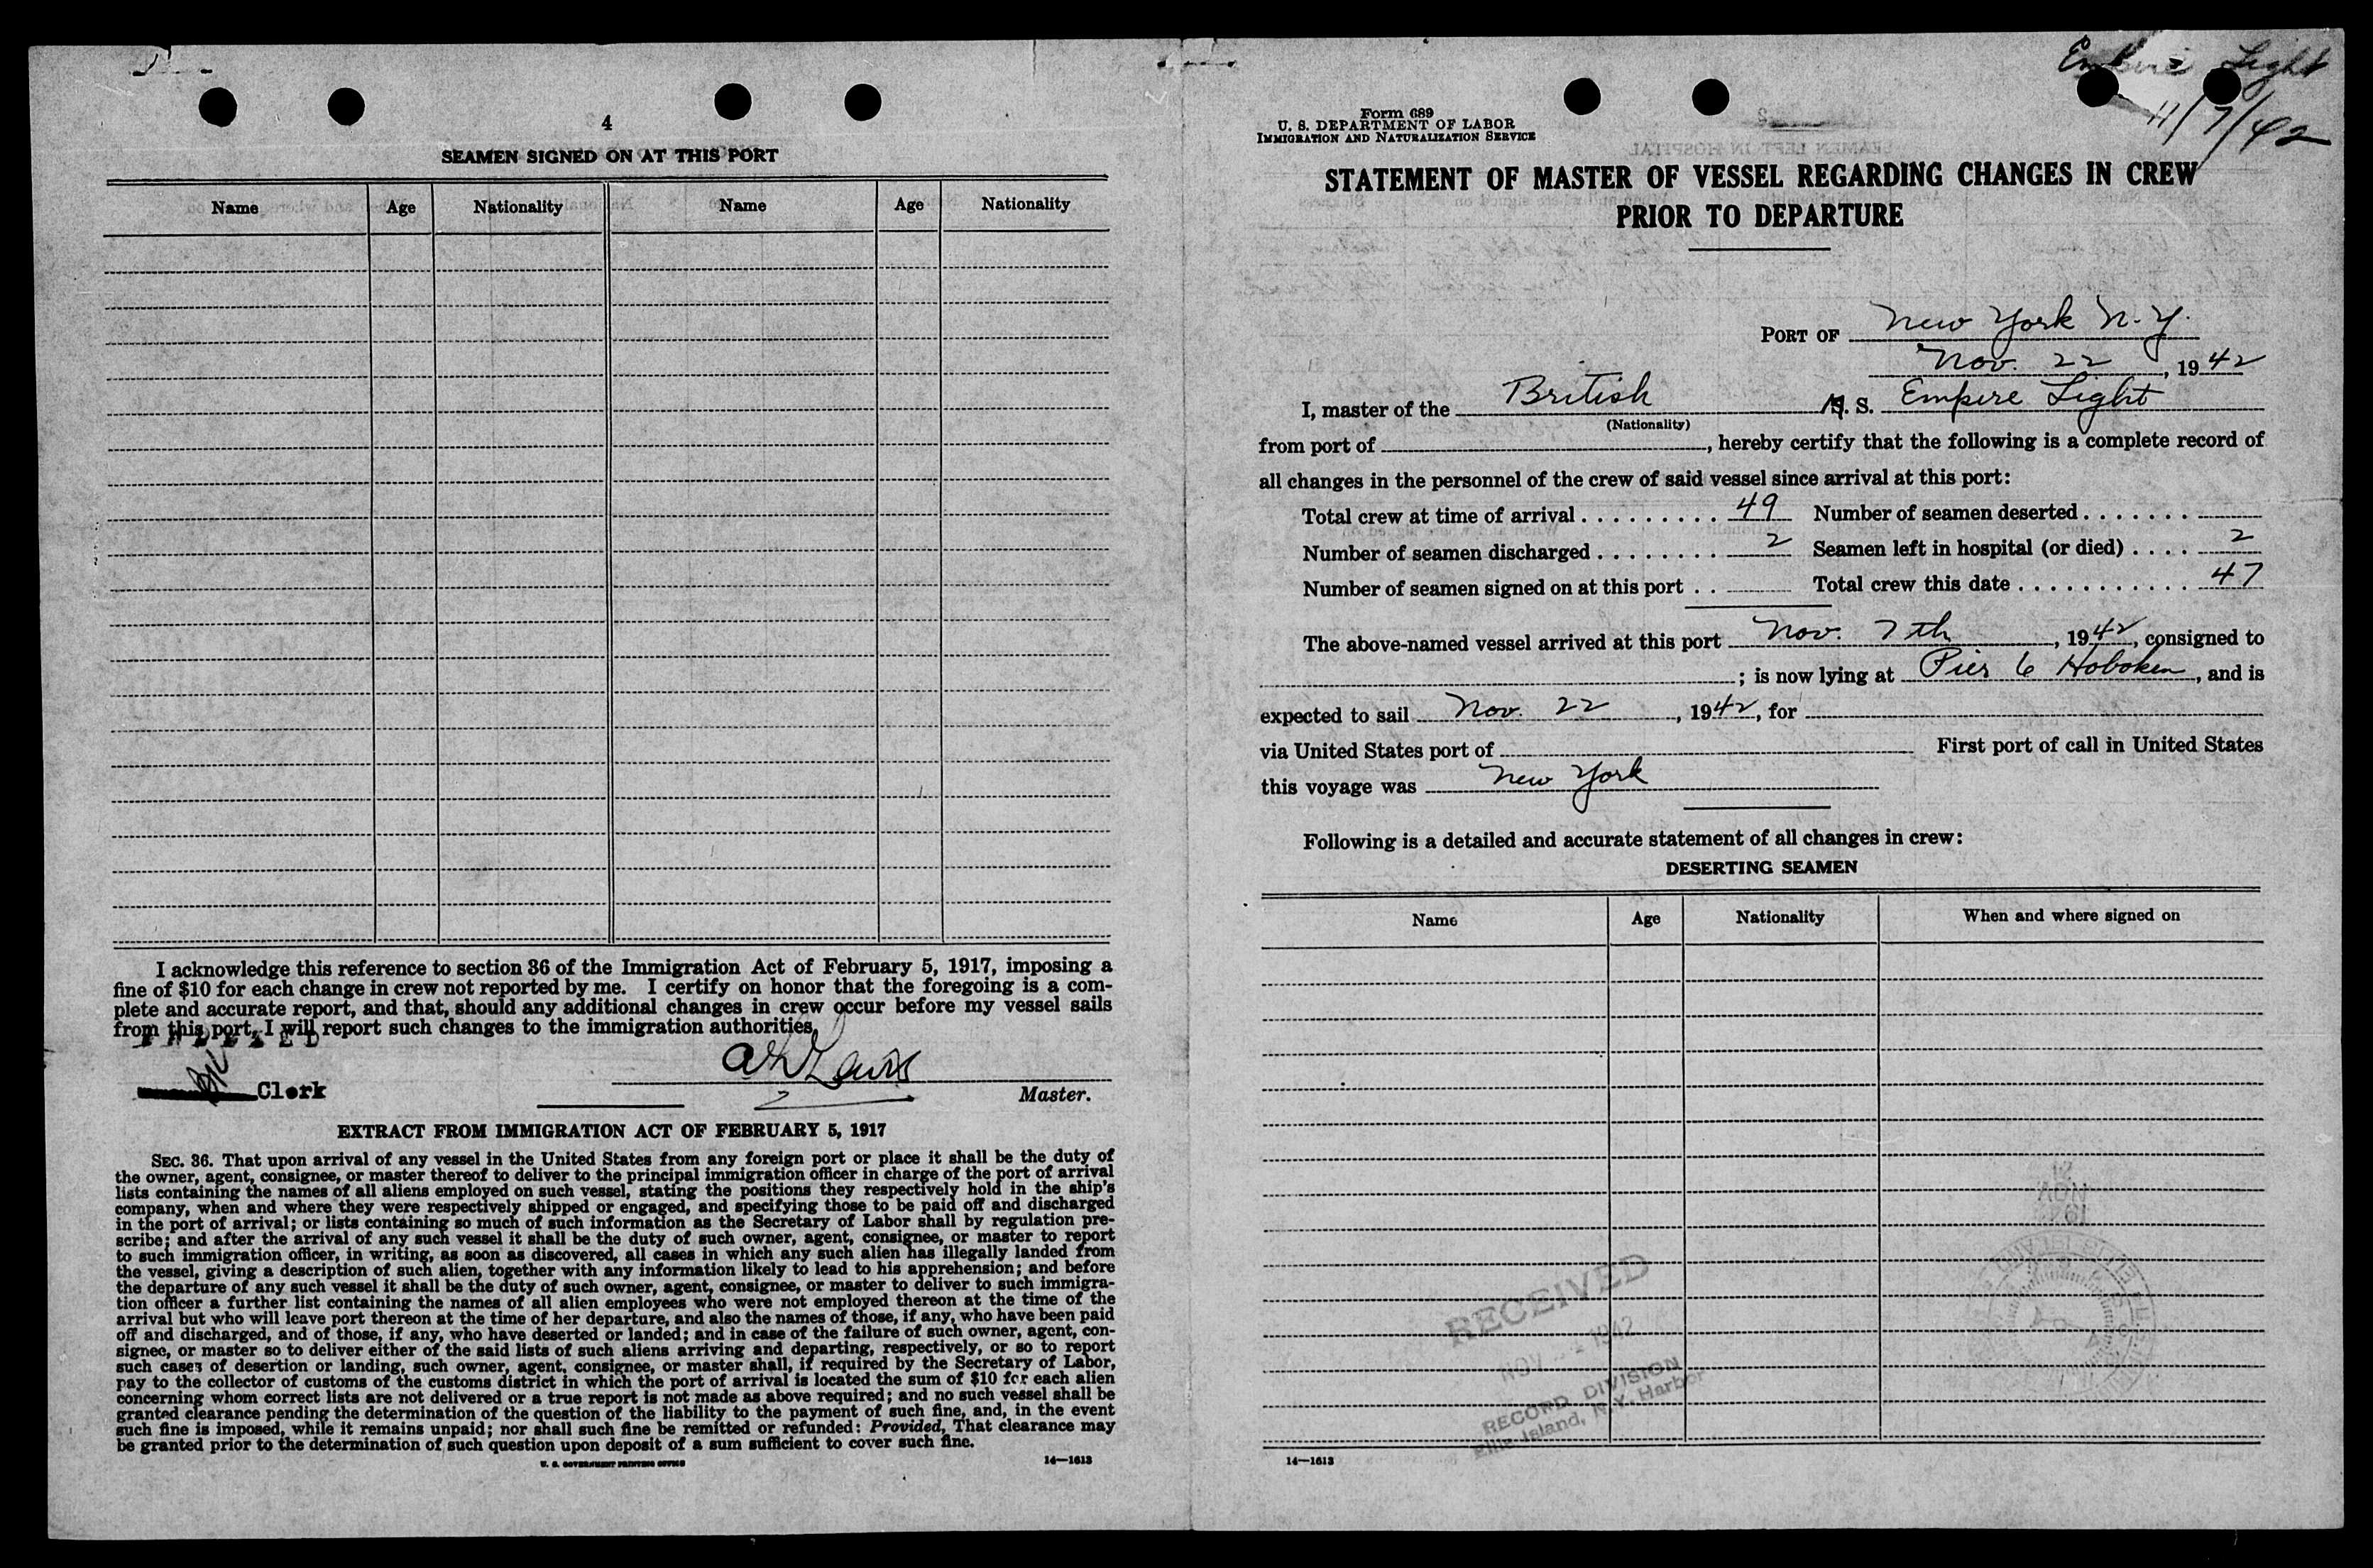 4
SEAMEN SIGNED ON AT THIS PORT
Name Age Nationality Name Age Nationality
I acknowledge this reference to section 36 of the Immigration Act of February 5, 1917, imposing a
fine of $10 for each change in crew not reported by me. I certify on honor that the foregoing is a com-
plete and accurate report, and that, should any additional changes in crew occur before my vessel sails
from this port, I will report such changes to the immigration authorities.
Clerk
Lewis
Master.
EXTRACT FROM IMMIGRATION ACT OF FEBRUARY 5, 1917
SEC. 36. That upon arrival of any vessel in the United States from any foreign port or place it shall be the duty of
the owner, agent, consignee, or master thereof to deliver to the principal immigration officer in charge of the port of arrival
lists containing the names of all aliens employed on such vessel, stating the positions they respectively hold in the ship's
company, when and where they were respectively shipped or engaged, and specifying those to be paid off and discharged
in the port of arrival; or lists containing so much of such information as the Secretary of Labor shall by regulation pre-
scribe; and after the arrival of any such vessel it shall be the duty of such owner, agent, consignee, or master to report
to such immigration officer, in writing, as soon as discovered, all cases in which any such alien has illegally landed from
the vessel, giving a description of such alien, together with any information likely to lead to his apprehension; and before
the departure of any such vessel it shall be the duty of such owner, agent, consignee, or master to deliver to such immigra-
tion officer a further list containing the names of all alien employees who were not employed thereon at the time of the
arrival but who will leave port thereon at the time of her departure, and also the names of those, if any, who have been paid
off and discharged, and of those, if any, who have deserted or landed; and in case of the failure of such owner, agent, con-
signee, or master so to deliver either of the said lists of such aliens arriving and departing, respectively, or so to report
such cases of desertion or landing, such owner, agent, consignee, or master shall, if required by the Secretary of Labor,
pay to the collector of customs of the customs district in which the port of arrival is located the sum of $10 for each alien
concerning whom correct lists are not delivered or a true report is not made as above required; and no such vessel shall be
granted clearance pending the determination of the question of the liability to the payment of such fine, and, in the event
such fine is imposed, while it remains unpaid; nor shall such fine be remitted or refunded: Provided, That clearance may
be granted prior to the determination of such question upon deposit of a sum sufficient to cover such fine.
U. S. GOVERNMENT PRINTING OFFICE 14—1613
Empire Light
11/7/42
Form 689
U. S. DEPARTMENT OF LABOR
IMMIGRATION AND NATURALIZATION SERVICE
STATEMENT OF MASTER OF VESSEL REGARDING CHANGES IN CREW
PRIOR TO DEPARTURE
PORT OF New York N.Y.
Nov. 22, 1942
I, master of the British M. S. Empire Light
(Nationality)
from port of , hereby certify that the following is a complete record of
all changes in the personnel of the crew of said vessel since arrival at this port:
Total crew at time of arrival . . . . . . . . . 49 Number of seamen deserted . . . . . . .
Number of seamen discharged . . . . . . . . 2 Seamen left in hospital (or died) . . . . 2
Number of seamen signed on at this port . . Total crew this date . . . . . . . . . . . . 47
The above-named vessel arrived at this port Nov. 7th, 1942, consigned to
; is now lying at Pier 6 Hoboken, and is
expected to sail Nov. 22, 1942, for
via United States port of First port of call in United States
this voyage was New York
Following is a detailed and accurate statement of all changes in crew:
DESERTING SEAMEN
Name Age Nationality When and where signed on
RECEIVED
NOV 1942
RECORD DIVISION
Ellis Island, N.Y. Harbor
14—1613